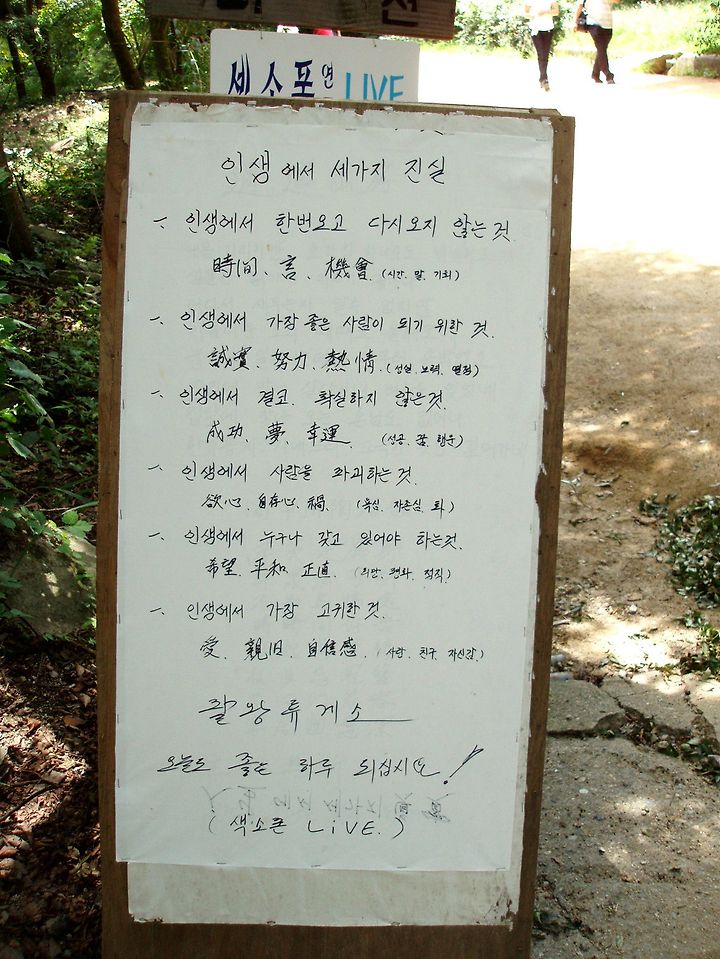 전
섹소폰 연 LIVE
인생에서 세가지 진실
一. 인생에서 한번오고 다시오지 않는것.
時間、言、機會. (시간. 말. 기회)
一. 인생에서 가장 좋은 사람이 되기 위한 것.
誠實. 努力. 熱情. (성실. 노력. 열정)
一. 인생에서 결코. 확실하지 않은것.
成功、夢、幸運. (성공. 꿈. 행운)
一. 인생에서 사람을 파괴하는것.
欲心. 自存心. 禍. (욕심. 자존심. 화)
一. 인생에서 누구나 갖고 있어야 하는것.
希望. 平和. 正直. (희망. 평화. 정직)
一. 인생에서 가장 고귀한 것.
愛. 親旧. 自信感. (사랑. 친구. 자신감.)
팔왕휴게소
오늘도 좋은 하루 되십시요!
(색소폰 LiVE.)